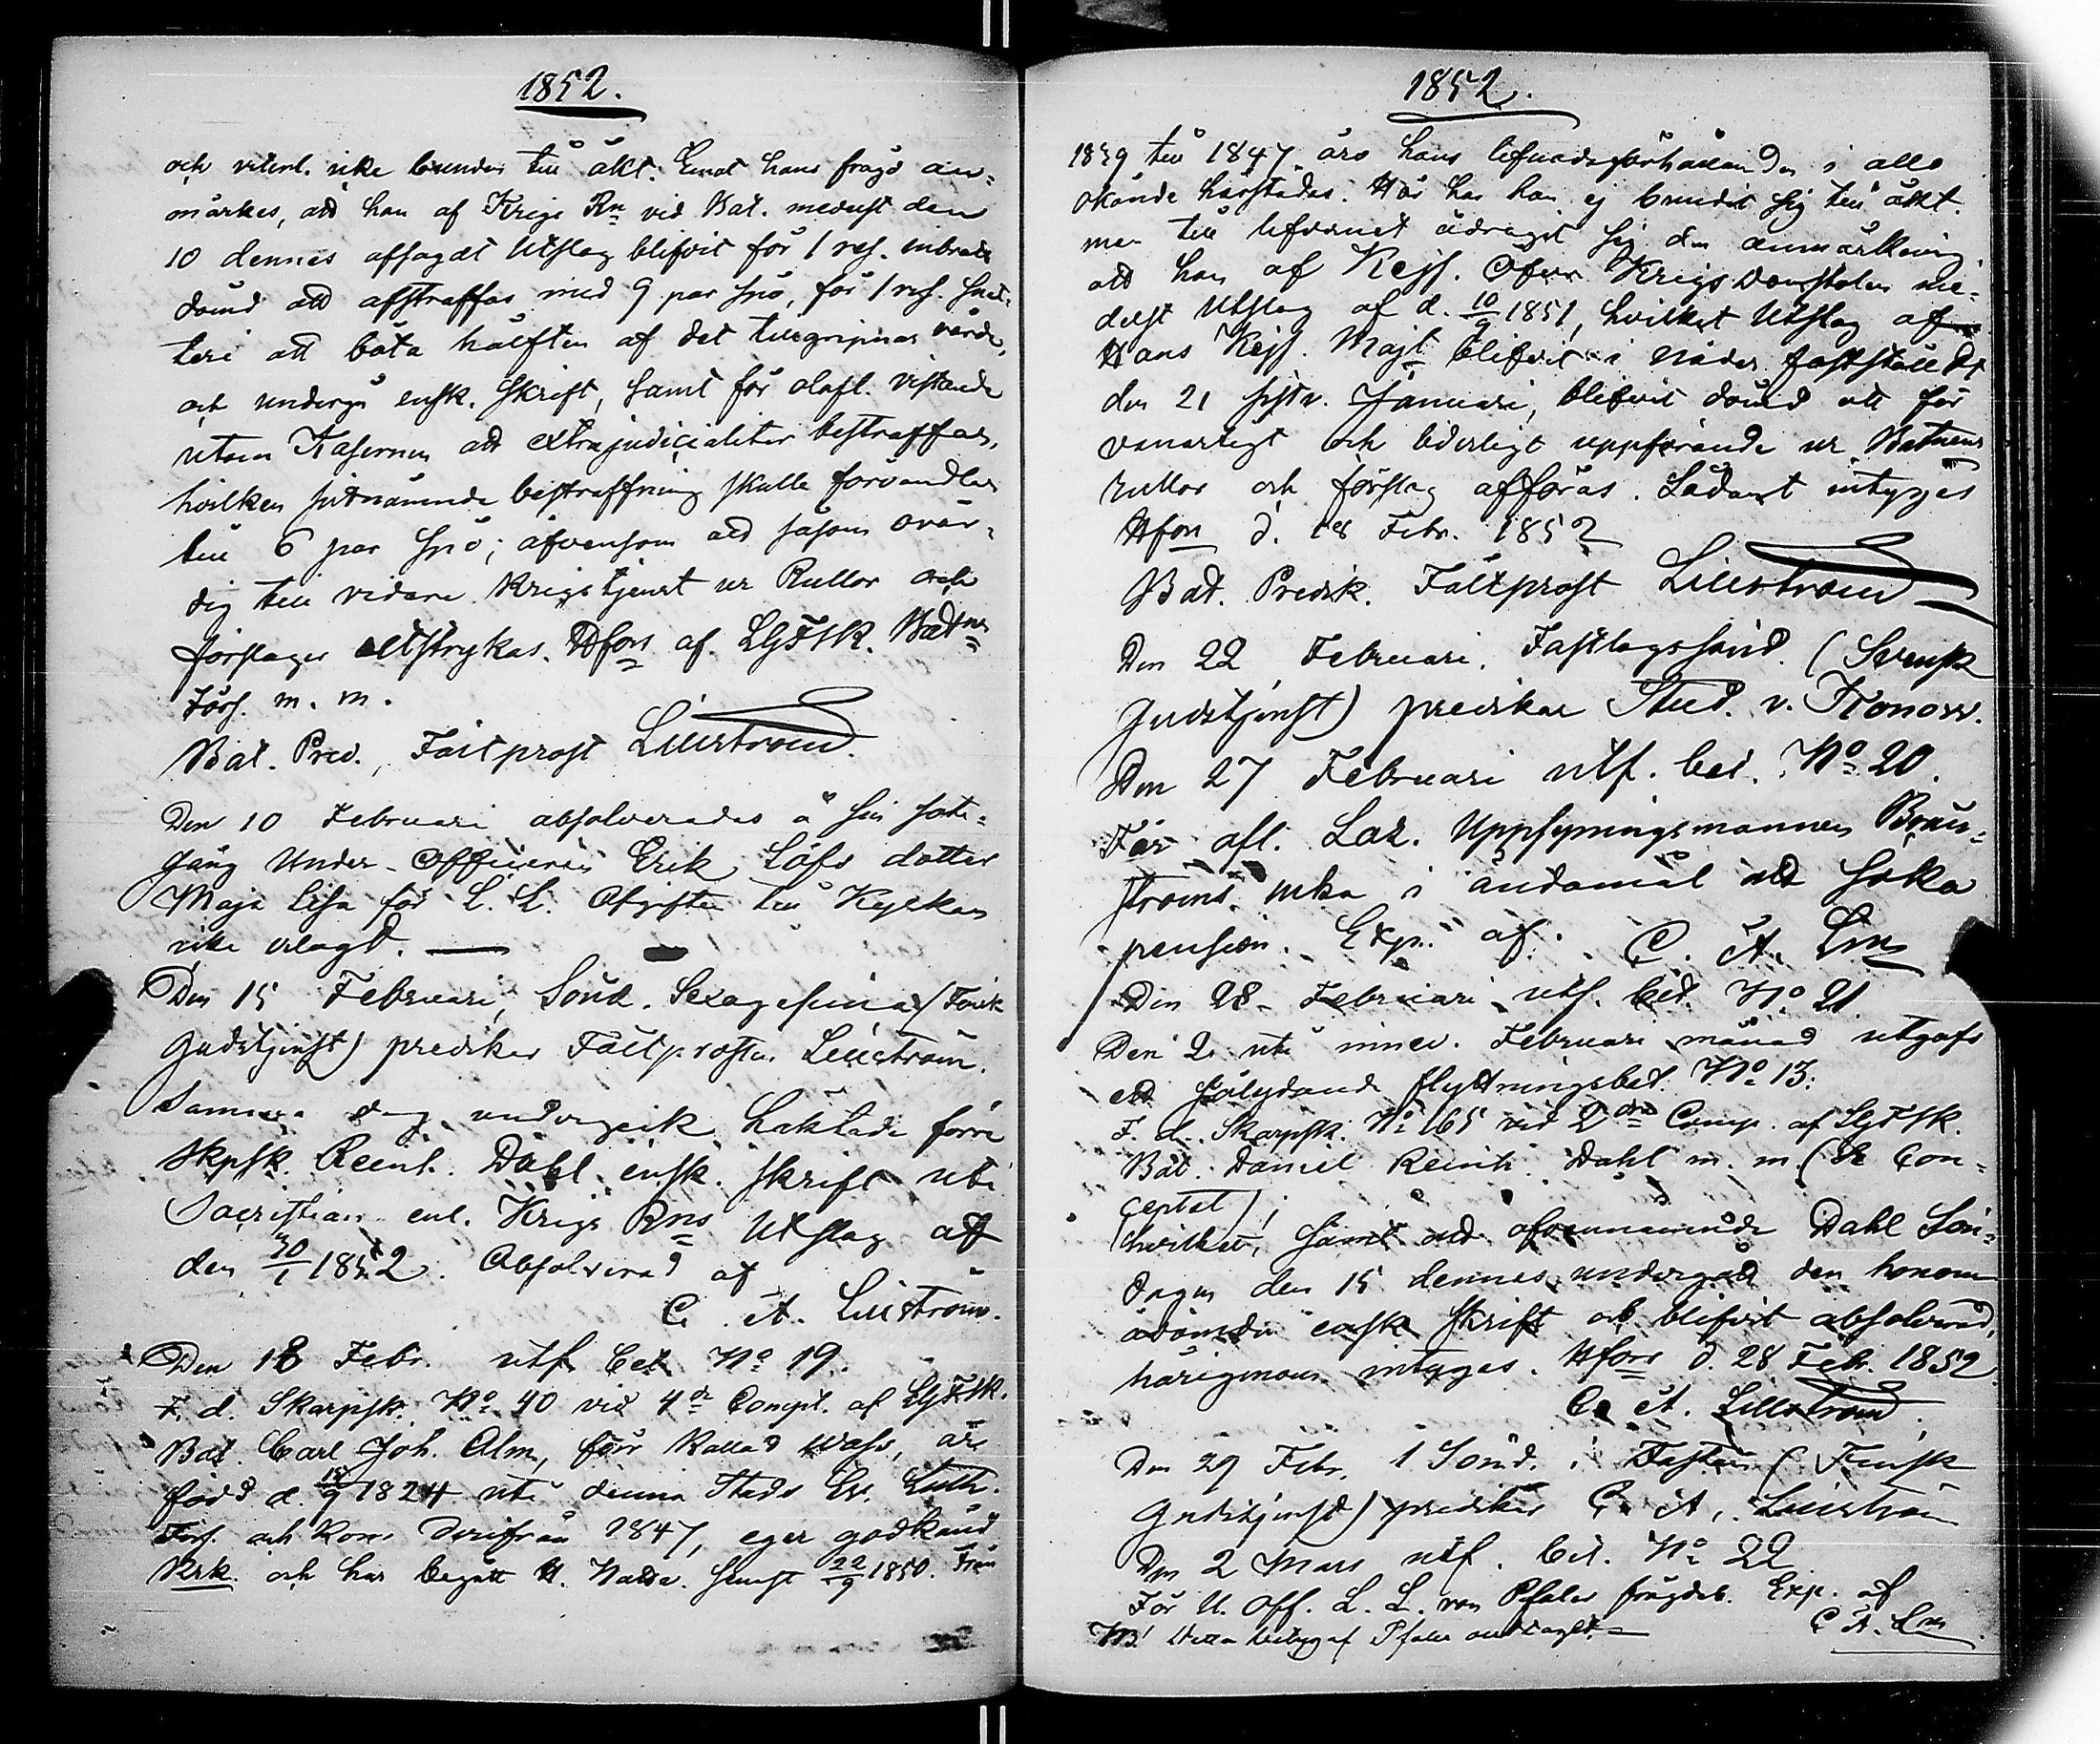 1852.
och veterl. icke bunden till äkt. Emot hans frägd an-
märkes, att han af Krigs Rn vid Bat. medelst den
10 dennes afsagdt Utslag blifvit för 1 res. inbrott
dömd att afstraffas med 9 par spö, för 1 res. snat-
teri att böta hälften af det tillgripnas värde,
och undergå ensk. skrift, samt för olofl. vistande
utom Kasernen att extrajudicialiter bestraffas,
hvilken sistnämnde bestraffning skulle förvandlas
till 6 par spö; äfvensom att såsom ovär-
dig till vidare Krigstjenst ur Rullor och
förslager utstrykas. Hfors af LGFSK. Batns
Förs. m. m.
Bat. Pred., Fältprost Lillström.
Den 10 Februari absolverades å sin sote-
säng Under-Officeren Erik Löfs dotter
Maja Lisa för L. L. Afgiften till Kyrkan
icke erlagd. —
Den 15 Februari, Sönd. Sexagesima (Finsk
Gudstjenst) predikar Fältprosten Lillström.
Samma dag undergick häktade förre
Skpsk. Reinh. Dahl ensk. skrift uti
Sacristian enl. Krigs Rns Utslag af
den 30/1 1852. Absolverad af
C. A. Lillström.
Den 18 Febr. utf. bet. No 19.
F. d. Skarpsk. No 40 vid 4de Comp. af LGFSK.
Bat. Carl Joh. Alm, förr kallad Wass, är
född d. 9 1824 uti denna Stads Ev. Luth.
Förs. och kom derifrån 1847, eger godkänd
Krk. och har begått H. Nattv. senast 22/9 1850. Från
1852.
1839 till 1847 äro hans lefnadsförhållanden i allo
okände härstädes. Här har han ej bundit sig till äkt.
men till lefvernet ådragit sig den anmärkning,
att han af Kejs. Öfver Krigs Domstolen me-
delst Utslag af d. 10/9 1851, hvilket Utslag af
Hans Kejs. Majt blifvit i Nåder fastställdt
den 21 sistl. Januari, blifvit dömd att för
vanartigt och liderligt uppförande ur Batnens
rullor och förslag afföras. Sådant intygges
Hfors d. 18 Febr. 1852
Bat. Predik. Fältprost Lillström
Den 22 Februari. Fastlagssönd. (Svensk
Gudstjenst) predikar Stud. v. Konow.
Den 27 Februari utf. bet. No 20.
För afl. Laz. Uppsyningsmannen
ströms enka i ändamål att söka
pension. Exp. af. C. A. Lm
Den 28 Februari utf. bet. No 21
Den 2 uti innev. Februari månad utgafs
ett sålydande flyttningsbet. No 13:
F. d. Skarpsk. No 165 vid 2dra Comp. af LGFSK.
Bat. Daniel Reinh. Dahl m. m. (Se Con-
ceptet);
hvilket, samt att ofvannämnde Dahl Sön-
dagen den 15 dennes undergått den honom
ådömda enska skrift och blifvit absolverad,
härigenom intygas. Hfors d. 28 Febr. 1852
C. A. Lillström.
Den 29 Febr. 1 Sönd. i Fastan (Finsk
Gudstjenst) predikar C. A. Lillström
Den 2 Mars utf. bet. No 22
För U. Off. L. L. von Pfaler frägdeb. Exp. af
C A. Lm
NB! Detta betyg af Pfaler